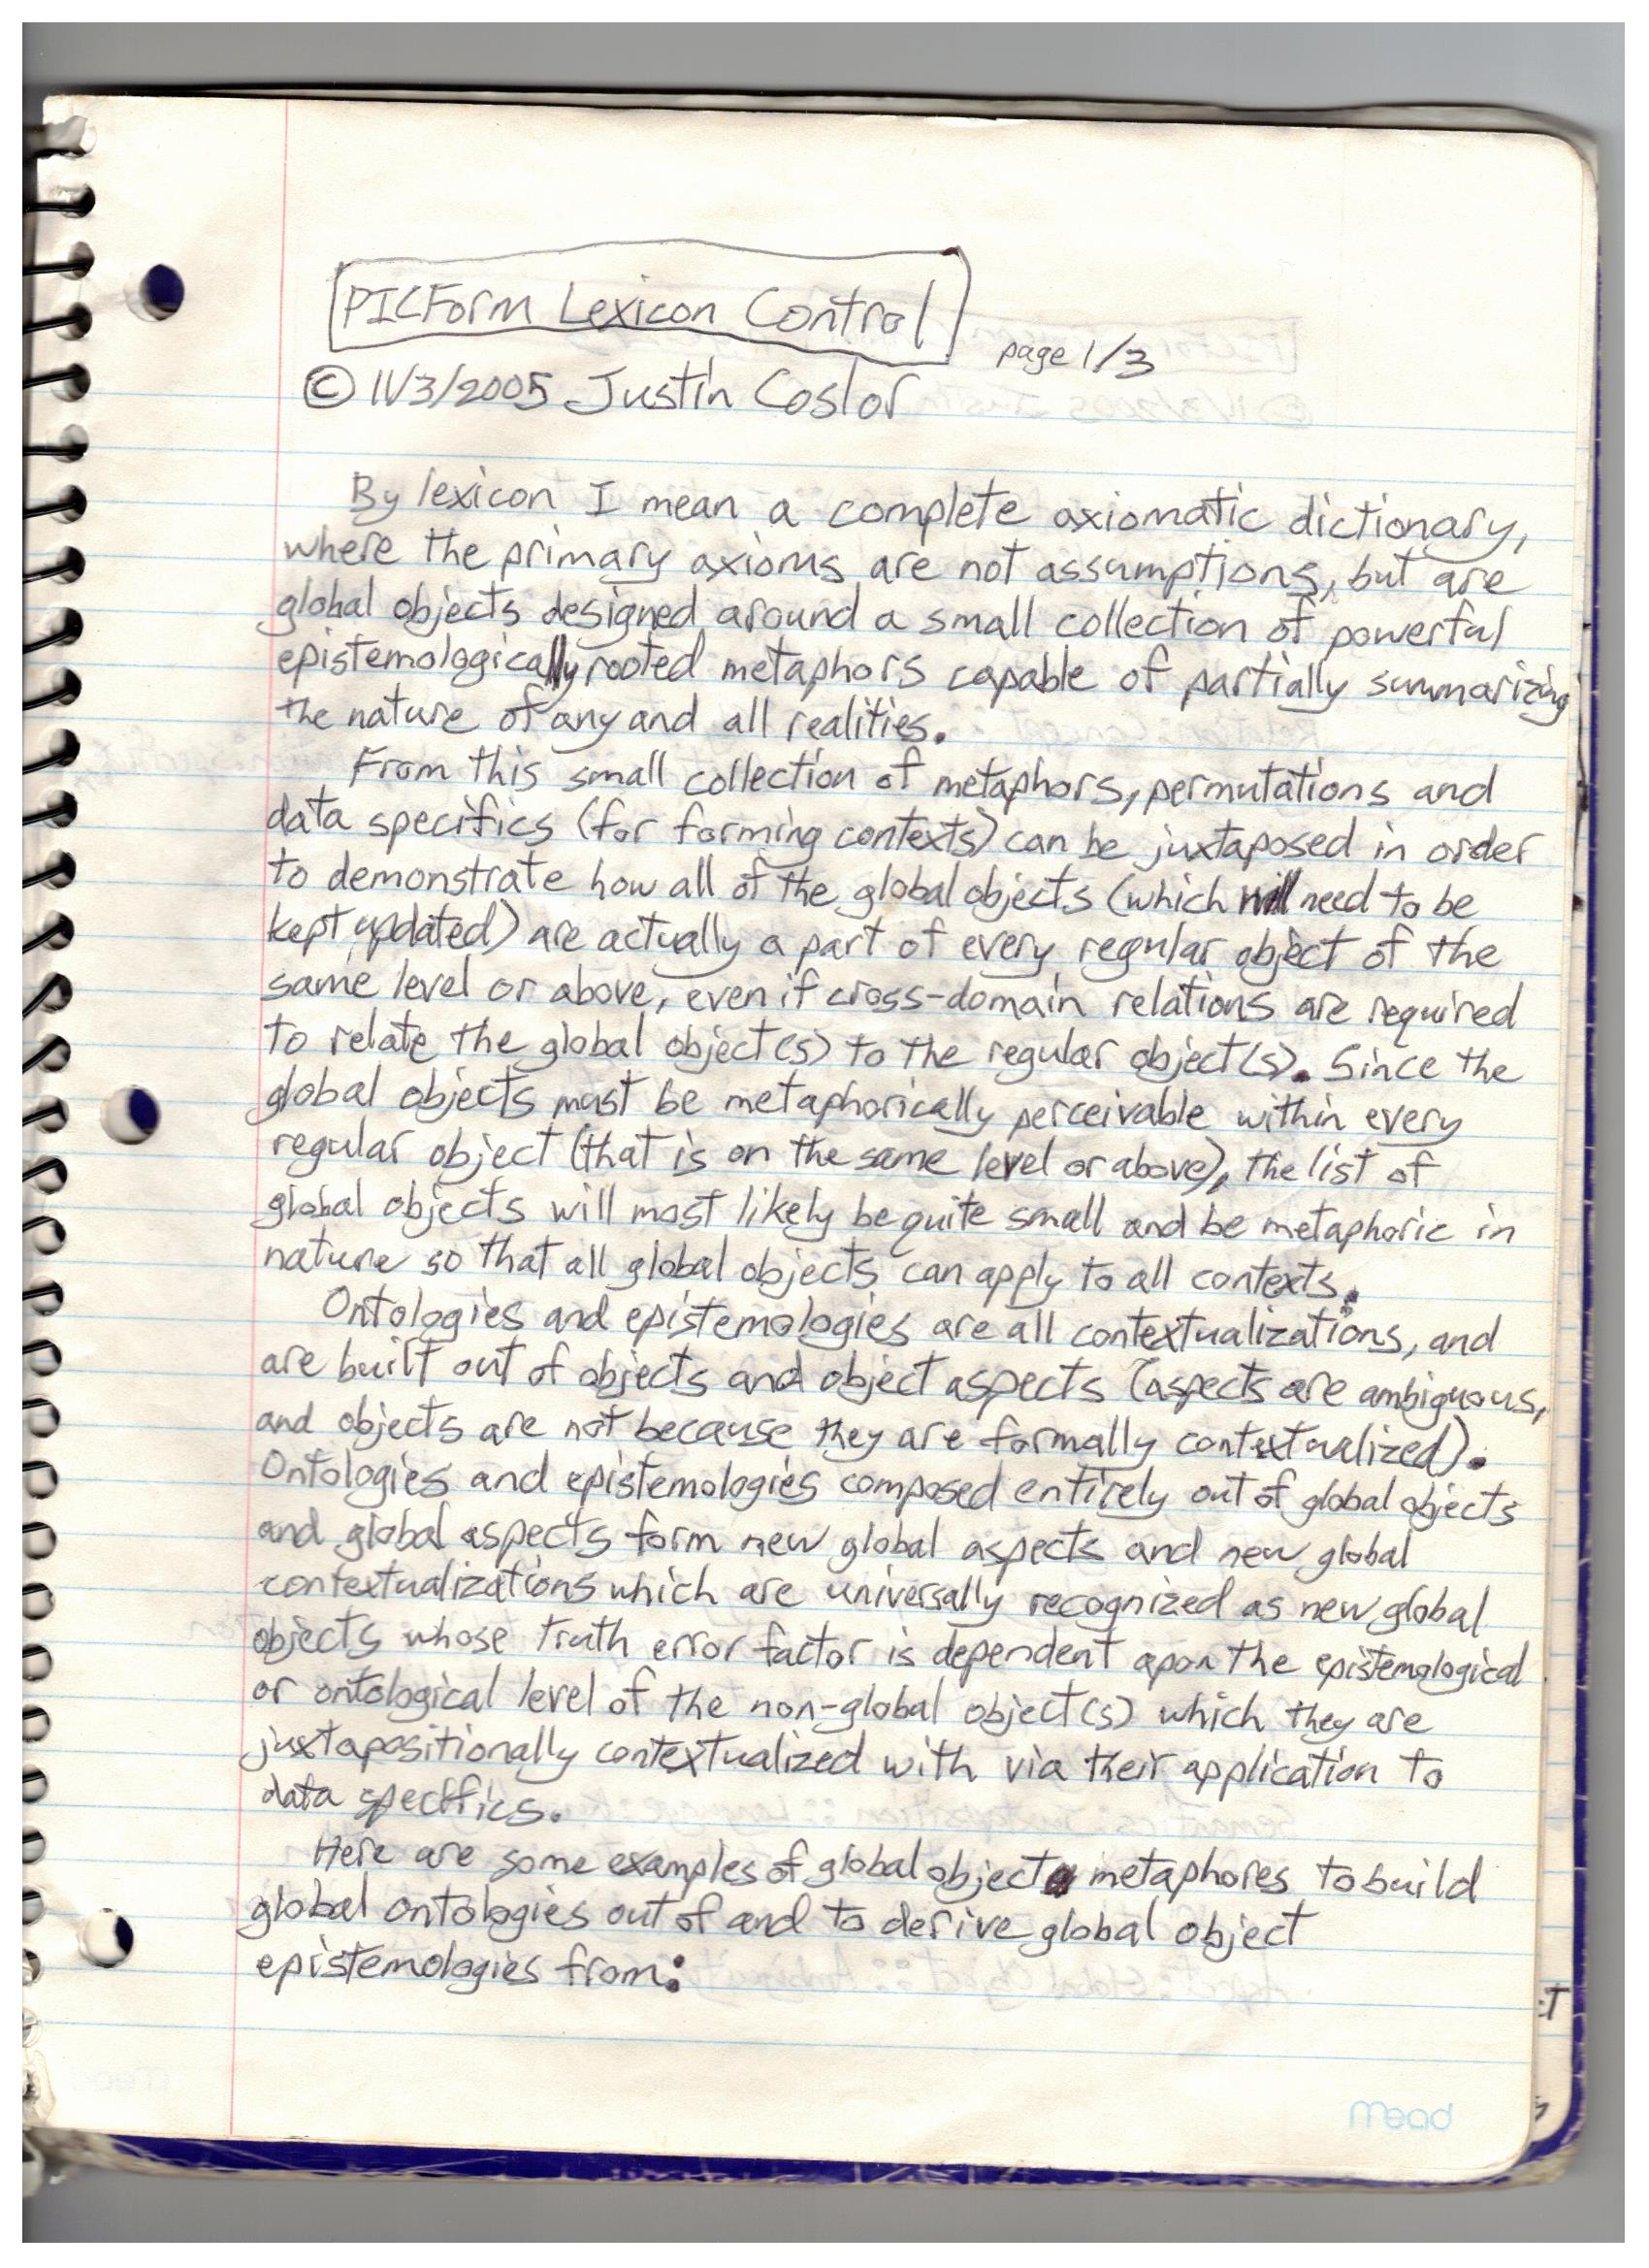 PICForm Lexicon Control
page 1/3
© 11/3/2005 Justin Coslor
By lexicon I mean a complete axiomatic dictionary,
where the primary axioms are not assumptions, but are
global objects designed around a small collection of powerful
epistemologically rooted metaphors capable of partially summarizing
the nature of any and all realities.
From this small collection of metaphors, permutations and
data specifics (for forming contexts) can be juxtaposed in order
to demonstrate how all of the global objects (which will need to be
kept updated) are actually a part of every regular object of the
same level or above, even if cross-domain relations are required
to relate the global object(s) to the regular object(s). Since the
global objects must be metaphorically perceivable within every
regular object (that is on the same level or above), the list of
global objects will most likely be quite small and be metaphoric in
nature so that all global objects can apply to all contexts.
Ontologies and epistemologies are all contextualizations, and
are built out of objects and object aspects (aspects are ambiguous,
and objects are not because they are formally contextualized).
Ontologies and epistemologies composed entirely out of global objects
and global aspects form new global aspects and new global
contextualizations which are universally recognized as new global
objects whose truth error factor is dependent upon the epistemological
or ontological level of the non-global object(s) which they are
juxtapositionally contextualized with via their application to
data specifics.
Here are some examples of global object metaphores to build
global ontologies out of and to derive global object
epistemologies from:
Mead